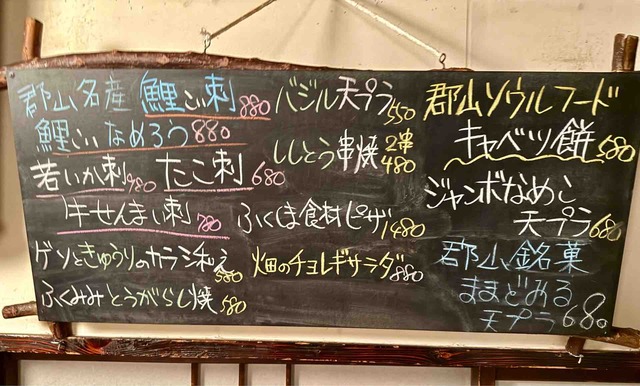 郡山名産 鯉こい刺 880
鯉こいなめろう 880
若いか刺 980 たこ刺 680
牛せんまい刺 780
ゲソときゅうりのカラシ和え 580
ふくみみとうがらし焼 580
バジル天プラ 550
ししとう串焼 2串 480
ふくしま食材ピザ 1480
畑のチョレギサラダ 880
郡山ソウルフード
キャベツ餅 580
ジャンボなめこ
天プラ 680
郡山銘菓
ままどおる
天プラ 680